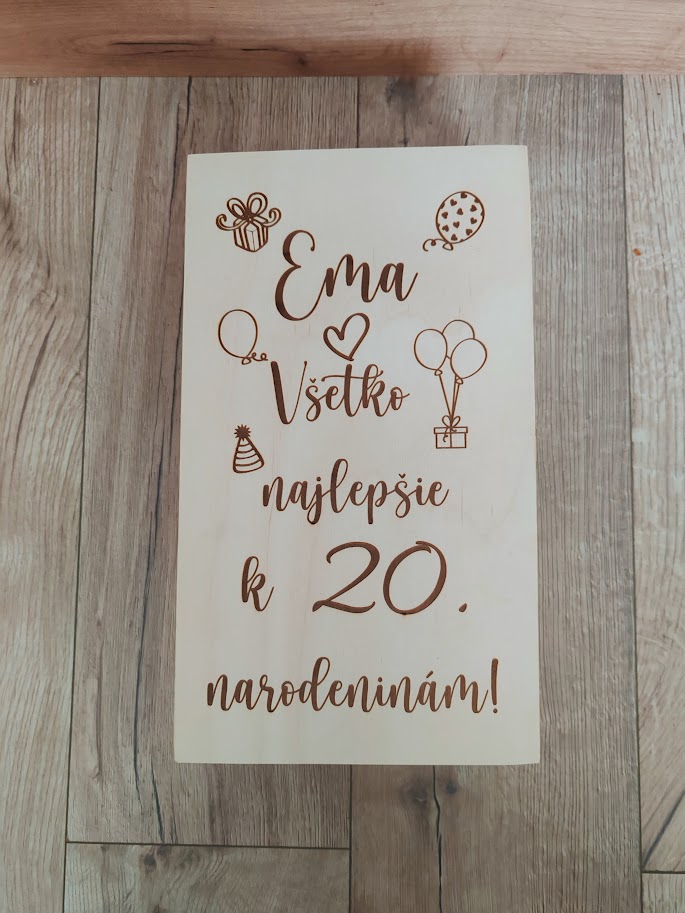 Ema
Všetko
najlepšie
k 20.
narodeninám!